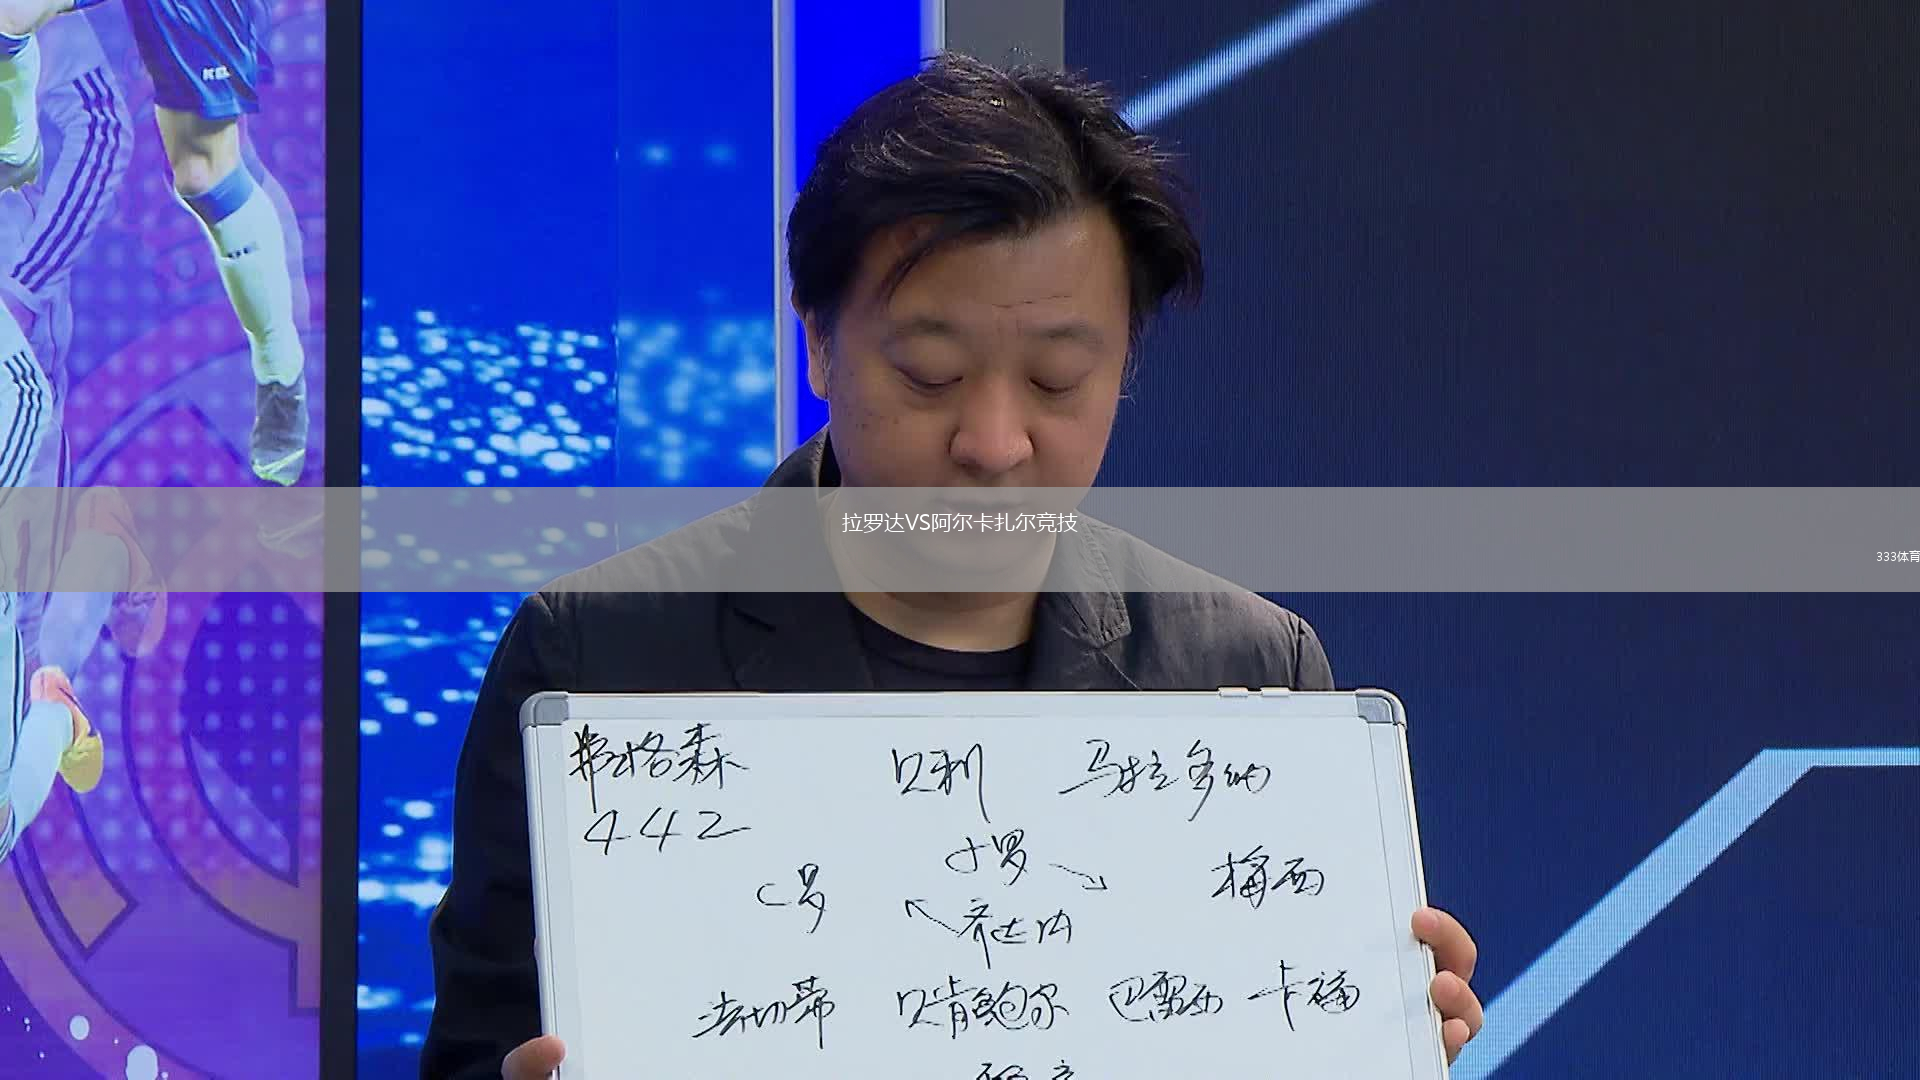 拉罗达VS阿尔卡扎尔竞技
333体育
弗格森 贝利 马拉多纳
442
小罗
C罗 梅西
齐达内
法切蒂 贝肯鲍尔 巴雷西 卡福